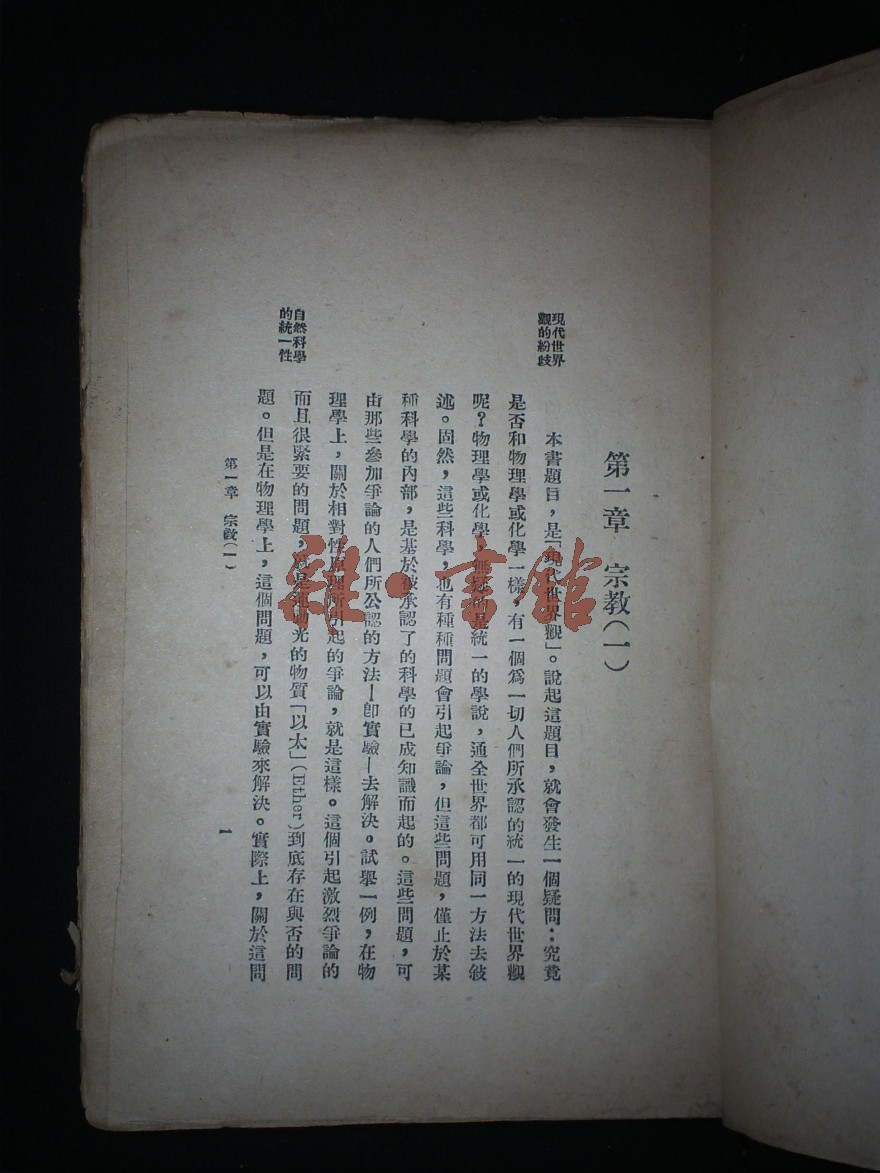 第一章　宗教(一)
現代世界
觀的紛歧
本書題目，是「現代世界觀」。說起這題目，就會發生一個疑問：究竟
是否和物理學或化學一樣，有一個爲一切人們所承認的統一的現代世界觀
呢？物理學或化學，無疑的是統一的學說，通全世界都可用同一方法去敍
述。固然，這些科學，也有種種問題會引起爭論，但這些問題，僅止於某
種科學的內部，是基於被承認了的科學的已成知識而起的。這些問題，可
由那些參加爭論的人們所公認的方法—卽實驗—去解決。試舉一例，在物
理學上，關於相對性原理所引起的爭論，就是這樣。這個引起激烈爭論的
自然科學
的統一性
而且很緊要的問題，就是 光的物質「以太」(Ether)到底存在與否的問
題。但是在物理學上，這個問題，可以由實驗來解決。實際上，關於這問
第一章　宗教(一)
一
雜·書館